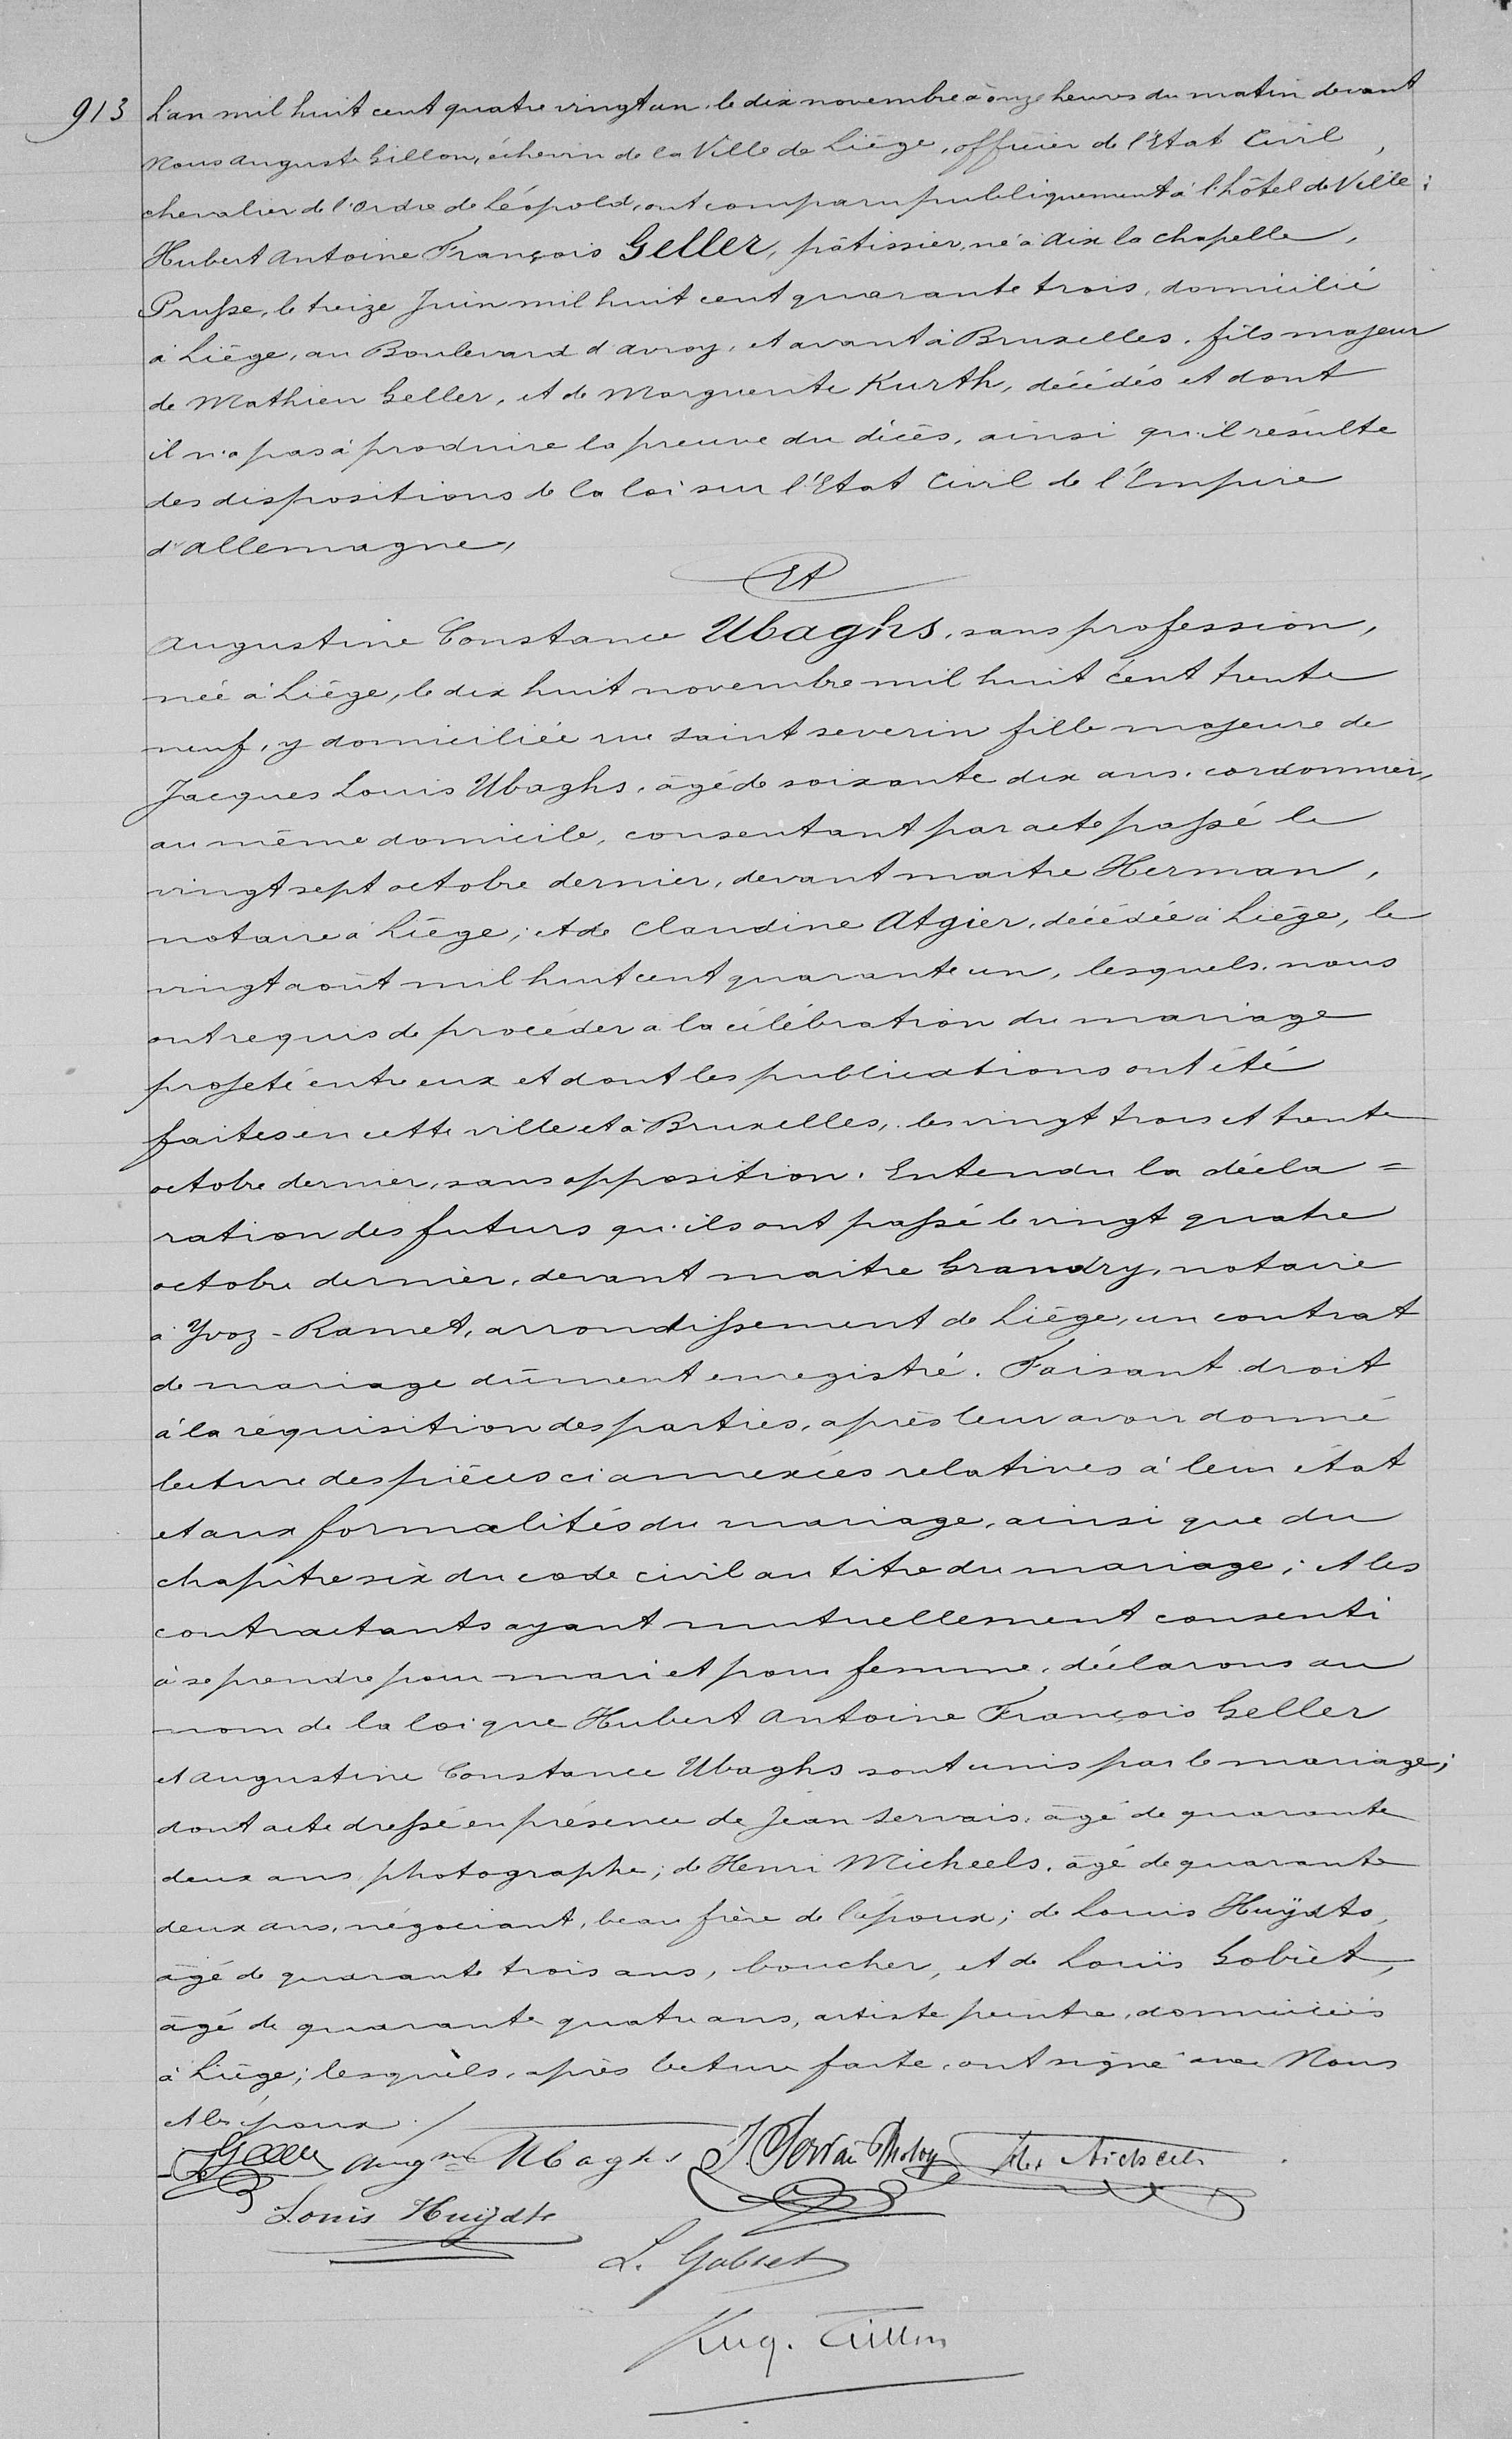 913 L'an mil huit cent quatre vingt un, le dix novembre à onze heures du matin devant
Nous Auguste Gillon, échevin de la Ville de Liége, officier de l'Etat Civil,
chevalier de l'ordre de Léopold, ont comparu publiquement à l'hôtel de Ville:
Hubert Antoine François Geller, pâtissier, né à Aix la Chapelle,
Prusse, le treize Juin mil huit cent quarante trois, domicilié
à Liége, au Boulevard d'avroy, et avant à Bruxelles, fils majeur
de Mathieu Geller, et de Marguerite Kurth, décédés et dont
il n'a pas à produire la preuve du décès, ainsi qu'il résulte
des dispositions de la loi sur l'Etat Civil de l'Empire
d'allemagne,
Et
Augustine Constance Ubaghs, sans profession,
née à Liége, le dix huit novembre mil huit cent trente
neuf, y domiciliée rue Saint severin fille majeure de
Jacques Louis Ubaghs, âgé de soixante dix ans, cordonnier,
au même domicile, consentant par acte passé le
vingt sept octobre dernier, devant maitre Herman,
notaire à Liége; et de Claudine Atgier, décédée à Liége, le
vingt août mil huit cent quarante un, lesquels nous
ont requis de procéder à la célébration du mariage
projeté entre eux et dont les publications ont été
faites en cette ville et à Bruxelles, les vingt trois et trente
octobre dernier, sans opposition. Entendu la décla=
ration des futurs qu'ils ont passé le vingt quatre
octobre dernier, devant maitre Grandry, notaire
à Yvoz-Ramet, arrondissement de Liége, un contrat
de mariage dûment enregistré. Faisant droit
à la réquisition des parties, après leur avoir donné
lecture des pièces ci annexées relatives à leur état
et aux formalités du mariage, ainsi que du
chapitre six du code civil au titre du mariage; et les
contractants ayant mutuellement consenti
à se prendre pour mari et pour femme, déclarons au
nom de la loi que Hubert Antoine François Geller
et Augustine Constance Ubaghs sont unis par le mariage;
dont acte dressé en présence de Jean Servais, âgé de quarante
deux ans, photographe; de Henri Micheels, âgé de quarante
deux ans, négociant, beau frère de l'époux; de Louis Huÿdts,
âgé de quarante trois ans, boucher, et de Louis Gobiet,
âgé de quarante quatre ans, artiste peintre, domiciliés
à Liége; lesquels, après lecture faite, ont signé avec Nous
et les époux./
Geller Augne Ubaghs J. Servai Photog Micheels
Louis Huÿdts
L. Gobiet
Aug. Gillon